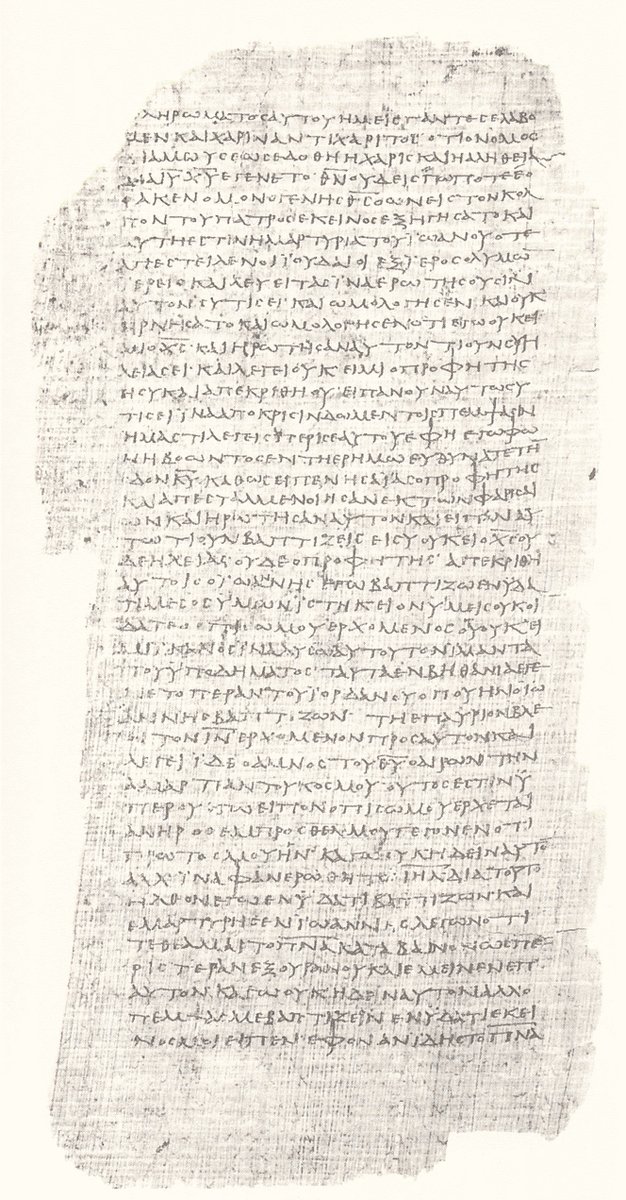 ΠΛΗΡΩΜΑΤΟϹΑΥΤΟΥΗΜΕΙϹΠΑΝΤΕϹΕΛΑΒΟ
ΜΕΝΚΑΙΧΑΡΙΝΑΝΤΙΧΑΡΙΤΟϹ·ΟΤΙΟΝΟΜΟϹ
ΔΙΑΜΩΥϹΕΩϹΕΔΟΘΗΗΧΑΡΙϹΚΑΙΗΑΛΗΘΕΙΑ
ΔΙΑΙ̅Υ̅Χ̅Υ̅ΕΓΕΝΕΤΟ·Θ̅Ν̅ΟΥΔΕΙϹΠΩΠΟΤΕΕΟ
ΡΑΚΕΝΟΜΟΝΟΓΕΝΗϹΘ̅Ϲ̅ΟΩΝΕΙϹΤΟΝΚΟΛ
ΠΟΝΤΟΥΠΑΤΡΟϹΕΚΕΙΝΟϹΕΞΗΓΗϹΑΤΟΚΑΙ
ΑΥΤΗΕϹΤΙΝΗΜΑΡΤΥΡΙΑΤΟΥΪΩΑΝΟΥΟΤΕ
ΑΠΕϹΤΕΙΛΕΝΟΙΪΟΥΔΑΙΟΙΕΞΪΕΡΟϹΟΛΥΜΩ̅
ΪΕΡΕΙϹΚΑΙΛΕΥΕΙΤΑϹΪΝΑΕΡΩΤΗϹΟΥϹΙΝ
ΑΥΤΟΝϹΥΤΙϹΕΙ·ΚΑΙΩΜΟΛΟΓΗϹΕΝΚΑΙΟΥΚ
ΗΡΝΗϹΑΤΟΚΑΙΩΜΟΛΟΓΗϹΕΝΟΤΙΕΓΩΟΥΚΕΙ
ΜΙΟΧ̅Ϲ̅·ΚΑΙΗΡΩΤΗϹΑΝΑΥΤΟΝΤΙΟΥΝϹΥΗ
ΛΕΙΑϹΕΙ·ΚΑΙΛΕΓΕΙΟΥΚΕΙΜΙΟΠΡΟΦΗΤΗϹ
ΕΙϹΥΚΑΙΑΠΕΚΡΙΘΗΟΥ·ΕΙΠΑΝΟΥΝΑΥΤΩϹΥ
ΤΙϹΕΙΪΝΑΑΠΟΚΡΙϹΙΝΔΩΜΕΝΤΟΙϹΠΕΜΨΑϹΙΝ
ΗΜΑϹΤΙΛΕΓΕΙϹΠΕΡΙϹΕΑΥΤΟΥΕΦΗΕΓΩΦΩ
ΝΗΒΟΩΝΤΟϹΕΝΤΗΕΡΗΜΩΕΥΘΥΝΑΤΕΤΗ̅
ΟΔΟΝΚ̅Υ̅ΚΑΘΩϹΕΙΠΕΝΗϹΑΪΑϹΟΠΡΟΦΗΤΗϹ
ΚΑΙΑΠΕϹΤΑΛΜΕΝΟΙΗϹΑΝΕΚΤΩΝΦΑΡΙϹΑΙ
ΩΝΚΑΙΗΡΩΤΗϹΑΝΑΥΤΟΝΚΑΙΕΙΠΑΝΑΥ
ΤΩΤΙΟΥΝΒΑΠΤΙΖΕΙϹΕΙϹΥΟΥΚΕΙΟΧ̅Ϲ̅ΟΥ
ΔΕΗΛΕΙΑϹΟΥΔΕΟΠΡΟΦΗΤΗϹ·ΑΠΕΚΡΙΘΗ
ΑΥΤΟΙϹΟΪΩΑΝΗϹΕΓΩΒΑΠΤΙΖΩΕΝΥΔΑ
ΤΙΜΕϹΟϹΥΜΩΝΙϹΤΗΚΕΙΟΝΥΜΕΙϹΟΥΚΟΙ
ΔΑΤΕΟΟΠΙϹΩΜΟΥΕΡΧΟΜΕΝΟϹΟΥΟΥΚΕΙ
ΜΙΪΚΑΝΟϹΪΝΑΛΥϹΩΑΥΤΟΥΤΟΝΙΜΑΝΤΑ
ΤΟΥΥΠΟΔΗΜΑΤΟϹ·ΤΑΥΤΑΕΝΒΗΘΑΝΙΑΕΓΕ
ΝΕΤΟΠΕΡΑΝΤΟΥΪΟΡΔΑΝΟΥΟΠΟΥΗΝΟΪΩ
ΑΝΝΗϹΒΑΠΤΙΖΩΝ· ΤΗΕΠΑΥΡΙΟΝΒΛΕ
ΠΕΙΤΟΝΙ̅Ν̅ΕΡΧΟΜΕΝΟΝΠΡΟϹΑΥΤΟΝΚΑΙ
ΛΕΓΕΙΪΔΕΟΑΜΝΟϹΤΟΥΘ̅Υ̅ΟΑΙΡΩΝΤΗΝ
ΑΜΑΡΤΙΑΝΤΟΥΚΟϹΜΟΥ·ΟΥΤΟϹΕϹΤΙΝΥ
ΠΕΡΟΥΕΓΩΕΙΠΟΝΟΠΙϹΩΜΟΥΕΡΧΕΤΑΙ
ΑΝΗΡΟϹΕΜΠΡΟϹΘΕΝΜΟΥΓΕΓΟΝΕΝΟΤΙ
ΠΡΩΤΟϹΜΟΥΗΝ·ΚΑΓΩΟΥΚΗΔΕΙΝΑΥΤΟ̅
ΑΛΛΪΝΑΦΑΝΕΡΩΘΗΤΩΙ̅Η̅Λ̅ΔΙΑΤΟΥΤΟ
ΗΛΘΟΝΕΓΩΕΝΥΔΑΤΙΒΑΠΤΙΖΩΝΚΑΙ
ΕΜΑΡΤΥΡΗϹΕΝΪΩΑΝΝΗϹΛΕΓΩΝΟΤΙ
ΤΕΘΕΑΜΑΙΤΟΠ̅Ν̅Α̅ΚΑΤΑΒΑΙΝΟΝΩϹΠΕ
ΡΙϹΤΕΡΑΝΕΞΟΥΡΑΝΟΥΚΑΙΕΜΕΙΝΕΝΕΠ
ΑΥΤΟΝ·ΚΑΓΩΟΥΚΗΔΕΙΝΑΥΤΟΝΑΛΛΟ
ΠΕΜΨΑϹΜΕΒΑΠΤΙΖΕΙΝΕΝΥΔΑΤΙΕΚΕΙ
ΝΟϹΜΟΙΕΙΠΕΝΕΦΟΝΑΝΙΔΗϹΤΟΠ̅Ν̅Α̅